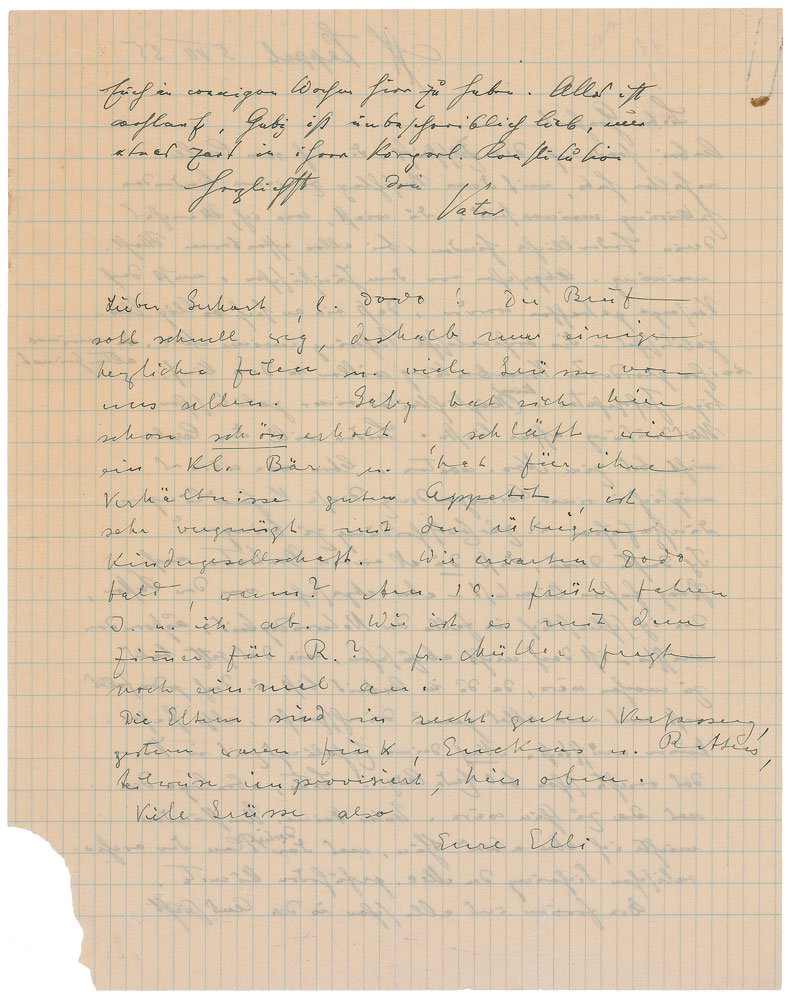 Euch in wenigen Wochen hier zu haben. Alles ist
wohlauf, Gaby ist unbeschreiblich lieb, nur
etwas zart in ihrer körperl. Konstitution
Herzlichst Dein
Vater
Lieber Gerhart, l. Dodo! Der Brief
soll schnell weg, deshalb nur einige
herzliche Zeilen u. viele Grüsse von
uns allen. Gaby hat sich hier
schon schön erholt, schläft wie
ein kl. Bär u. hat für ihre
Verhältnisse guten Appetit, ist
sehr vergnügt mit der übrigen
Kindergesellschaft. Wir erwarten Dodo
bald, wann? Am 10. früh fahren
J. u. ich ab. Wie ist es mit dem
Zimmer für R.? Fr. Müller fragt
noch einmal an.
Die Eltern sind in recht guter Verfassung,
gestern waren Fink, Euckens u.
teilweise improvisiert, hier oben.
Viele Grüsse also
Eure Elli